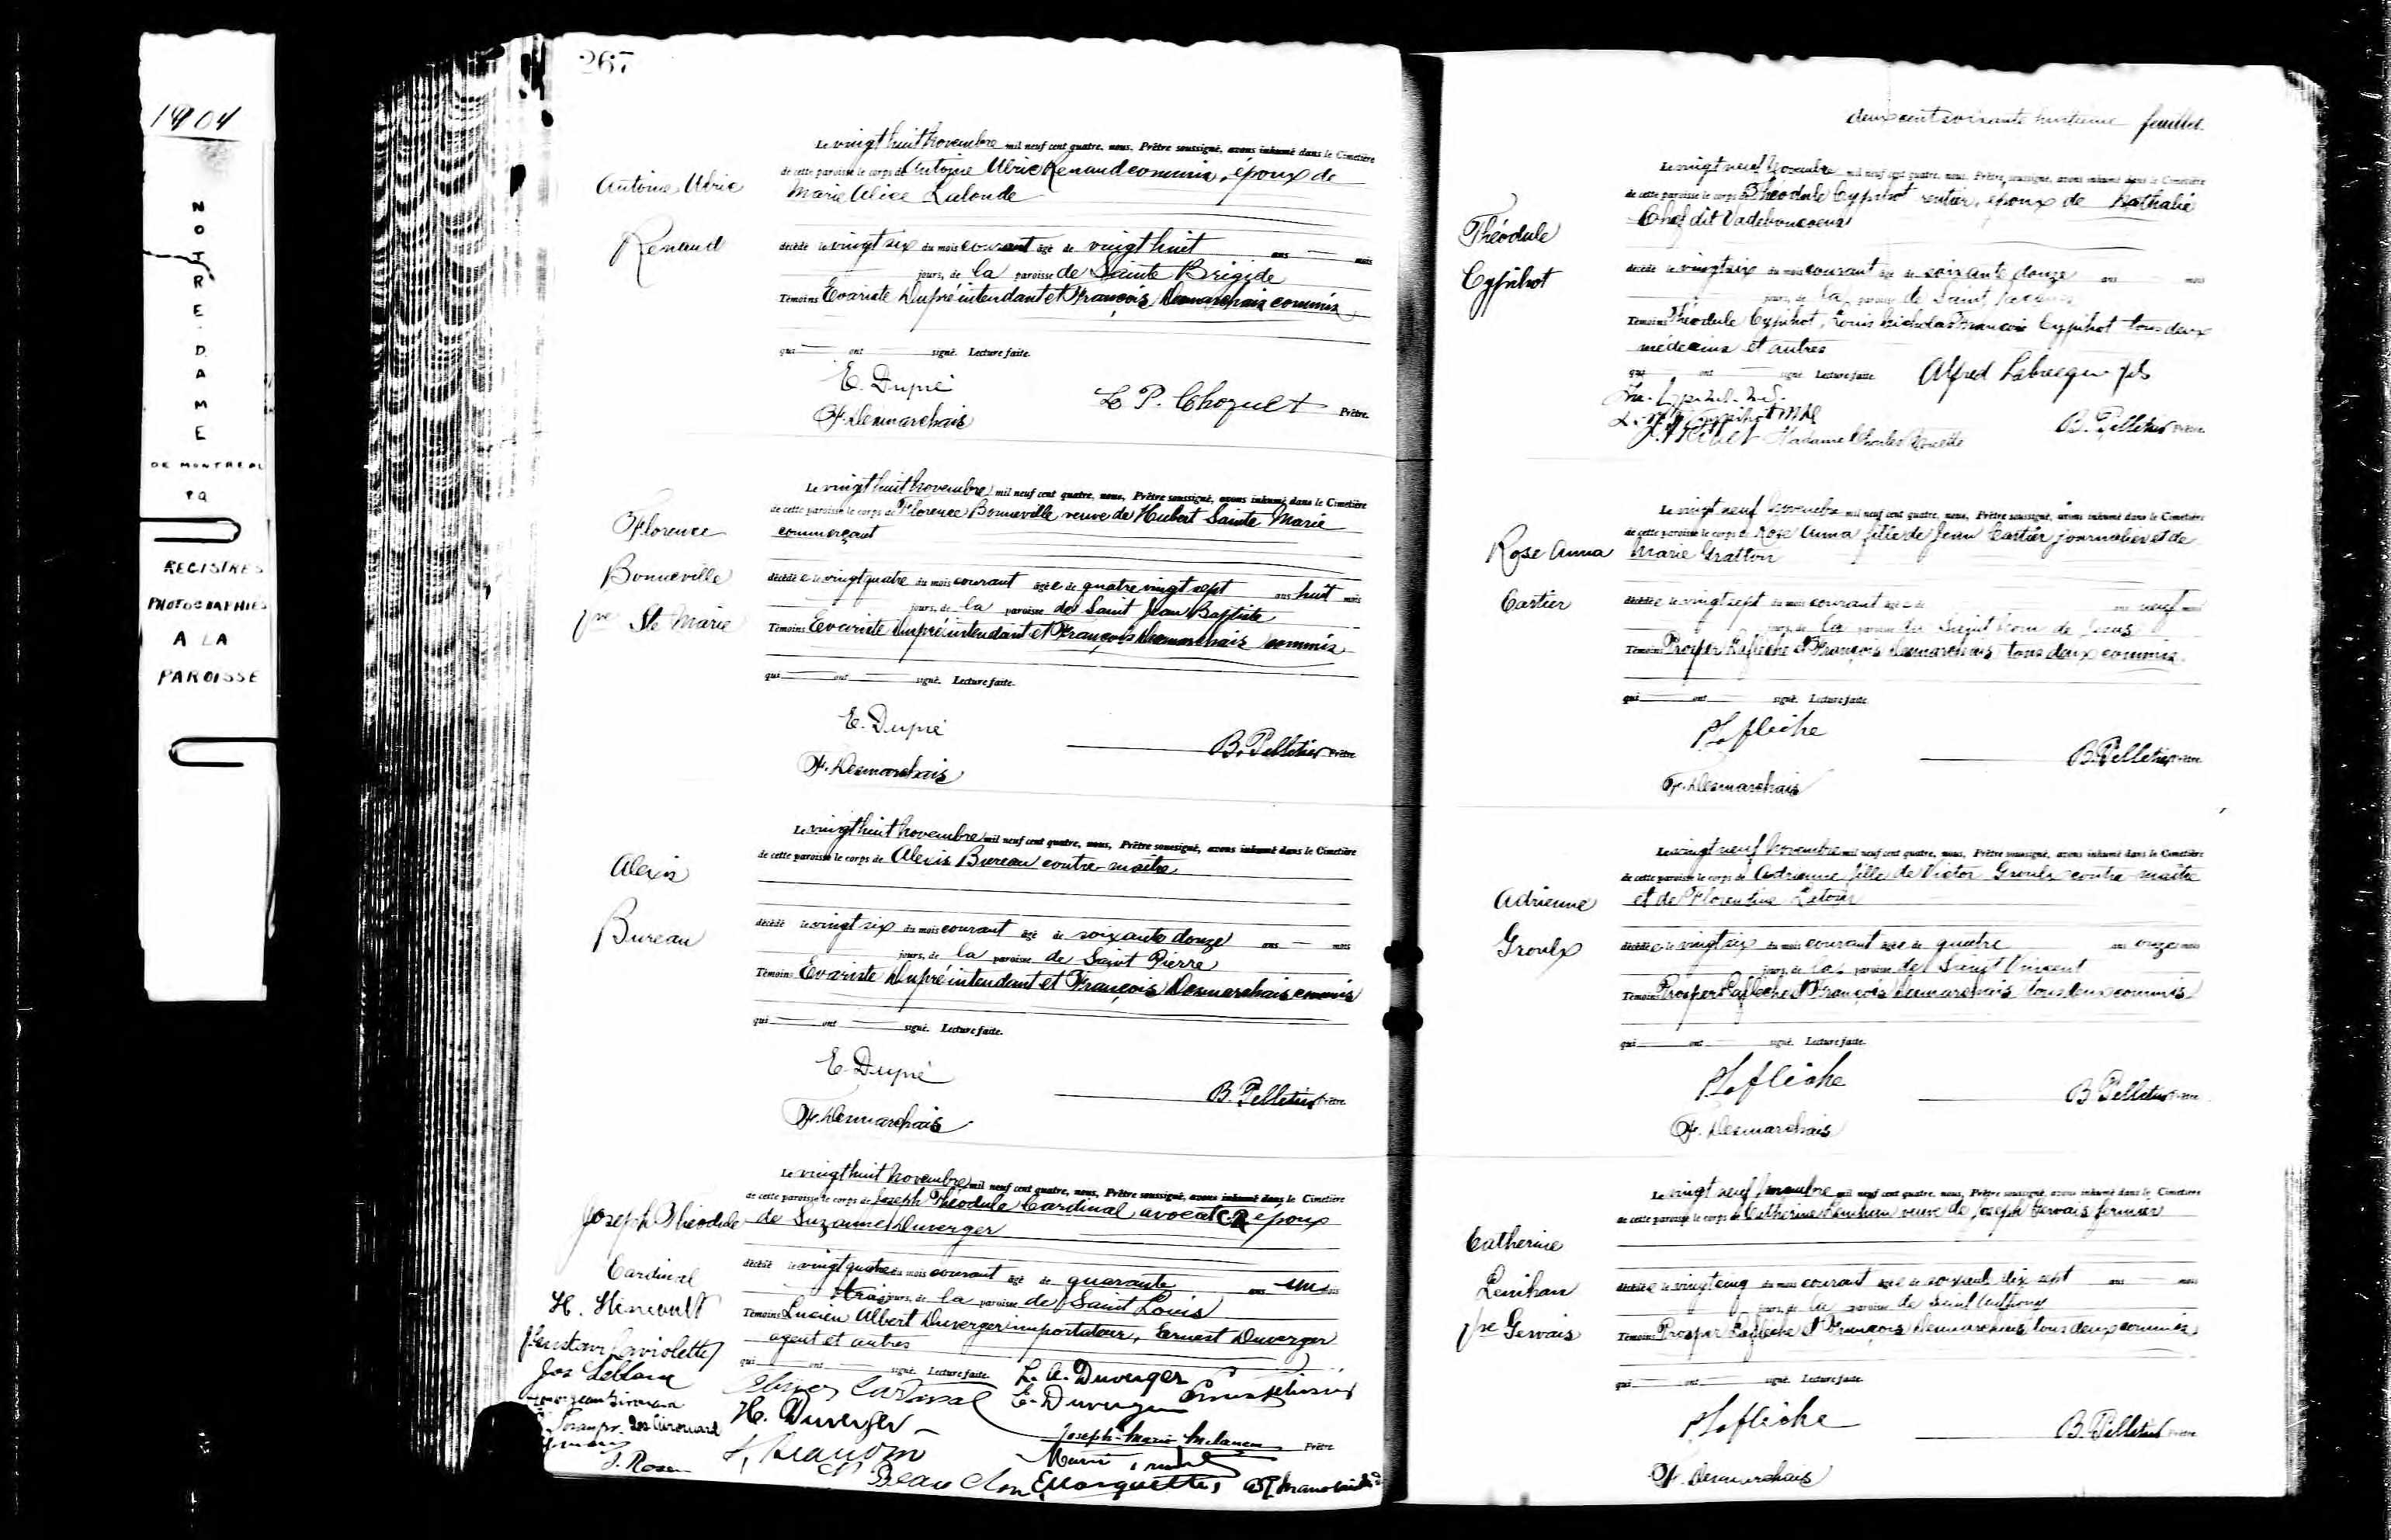 1904
NOTRE DAME
DE MONTREAL
PQ
REGISTRES
PHOTOGRAPHIES
A LA
PAROISSE
267
Le vingt huit novembre mil neuf cent quatre, nous, Prêtre soussigné, avons inhumé dans le Cimetière
de cette paroisse le corps de Antoine Ulric Renaud commis, époux de
Marie Alice Lalonde
Antoine Ulric
Renaud
décédé le vingt six du mois courant âgé de vingt huit ans mois
jours, de la paroisse de Sainte Brigide
Témoins Evariste Dupré intendant et François Desmarchais commis
qui ont signé. Lecture faite.
E. Dupré
L. P. Choquet Prêtre.
F. Desmarchais
Le vingt huit novembre mil neuf cent quatre, nous, Prêtre soussigné, avons inhumé dans le Cimetière
de cette paroisse le corps de Florence Bonneville veuve de Hubert Sainte Marie
commerçant
Florence
Bonneville
Ve Ste Marie
décédée le vingt quatre du mois courant âgée de quatre vingt sept ans huit mois
jours, de la paroisse de Saint Jean Baptiste
Témoins Evariste Dupré intendant et François Desmarchais commis
qui ont signé. Lecture faite.
E. Dupré
B. Pelletier Prêtre
F. Desmarchais
Le vingt huit novembre mil neuf cent quatre, nous, Prêtre soussigné, avons inhumé dans le Cimetière
de cette paroisse le corps de Alexis Bureau contre-maître
Alexis
Bureau
décédé le vingt six du mois courant âgé de soixante douze ans mois
jours, de la paroisse de Saint Pierre
Témoins Evariste Dupré intendant et François Desmarchais commis
qui ont signé. Lecture faite.
E. Dupré
B. Pelletier Prêtre
F. Desmarchais
Le vingt huit novembre mil neuf cent quatre, nous, Prêtre soussigné, avons inhumé dans le Cimetière
de cette paroisse le corps de Joseph Théodule Cardinal avocat C.R. époux
de Suzanne Duverger
Joseph Théodule
Cardinal
décédé le vingt quatre du mois courant âgé de quarante ans un mois
trois jours, de la paroisse de Saint Louis
Témoins Lucien Albert Duverger importateur, Ernest Duverger
agent et autres
qui ont signé. Lecture faite.
L. A. Duverger
E. Duverger
H. Duverger
Cardinal
Joseph-Marie Melançon Prêtre
Laviolette
Jos Leblanc
J. Rosen
E. Marquette
deux cent soixante huitième feuillet.
Le vingt neuf novembre mil neuf cent quatre, nous, Prêtre soussigné, avons inhumé dans le Cimetière
de cette paroisse le corps de Théodule Cypihot rentier, époux de Nathalie
Chef dit Vadeboncoeur
Théodule
Cypihot
décédé le vingt six du mois courant âgé de soixante douze ans mois
jours, de la paroisse de Saint Jacques
Témoins Théodule Cypihot, Louis Nicholas François Cypihot tous deux
médecins et autres
qui ont signé. Lecture faite
Alfred Labrecque fils
Cypihot MD
Madame Charles
B. Pelletier Prêtre
Le vingt neuf novembre mil neuf cent quatre, nous, Prêtre soussigné, avons inhumé dans le Cimetière
de cette paroisse le corps de Rose Anna fille de Jean Cartier journalier et de
Marie Gratton
Rose Anna
Cartier
décédée le vingt sept du mois courant âgée de ans neuf mois
jours, de la paroisse du Saint Nom de Jésus
Témoins Prosper Laflèche et François Desmarchais tous deux commis
qui ont signé. Lecture faite
P. Laflèche
B. Pelletier Prêtre
F. Desmarchais
Le vingt neuf novembre mil neuf cent quatre, nous, Prêtre soussigné, avons inhumé dans le Cimetière
de cette paroisse le corps de Adrienne fille de Victor Groulx contre-maître
et de Florentine Letour
Adrienne
Groulx
décédée le vingt six du mois courant âgée de quatre ans onze mois
jours, de la paroisse de Saint Vincent
Témoins Prosper Laflèche et François Desmarchais tous deux commis
qui ont signé. Lecture faite.
P. Laflèche
B. Pelletier Prêtre
F. Desmarchais
Le vingt neuf novembre mil neuf cent quatre, nous, Prêtre soussigné, avons inhumé dans le Cimetière
de cette paroisse le corps de Catherine Lenihan veuve de Joseph Gervais fermier
Catherine
Lenihan
Ve Gervais
décédée le vingt cinq du mois courant âgée de soixante dix sept ans mois
jours, de la paroisse de Saint Anthony
Témoins Prosper Laflèche et François Desmarchais tous deux commis
qui ont signé. Lecture faite.
P. Laflèche
B. Pelletier Prêtre
F. Desmarchais